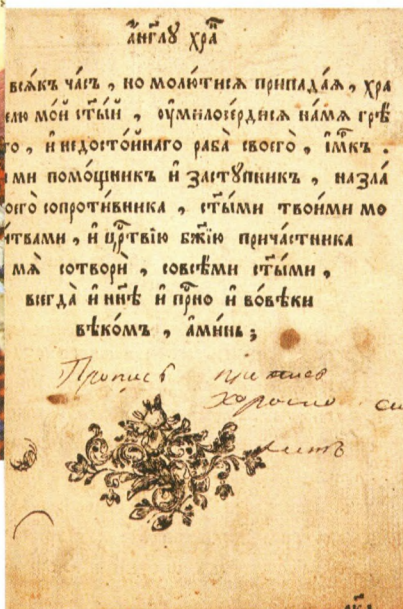 а҆́нг҃лу хра̑
всякъ ча́съ , но молю́тися припадая , хра
елю мо́й ст҃ы́й , оу҆милосе́рдися на́мя грѣ́
го , и҆недосто́йнаго раба̀ своего̀ , і҆м҃къ .
ми помо́щникъ и҆ засту́пникъ , назла
оего̀ сопроти́вника , ст҃ы́ми твои́ми мо
и́твами , и҆ црⷭ҇твїю бж҃їю прича́стника
мѧ̀ сотворѝ , совсѣ́ми ст҃ы́ми ,
всегда̀ и҆ нн҃ѣ и҆ прⷭ҇но и҆ во́вѣки
вѣко́мъ , а҆ми́нь ;
Пропись
хорошо